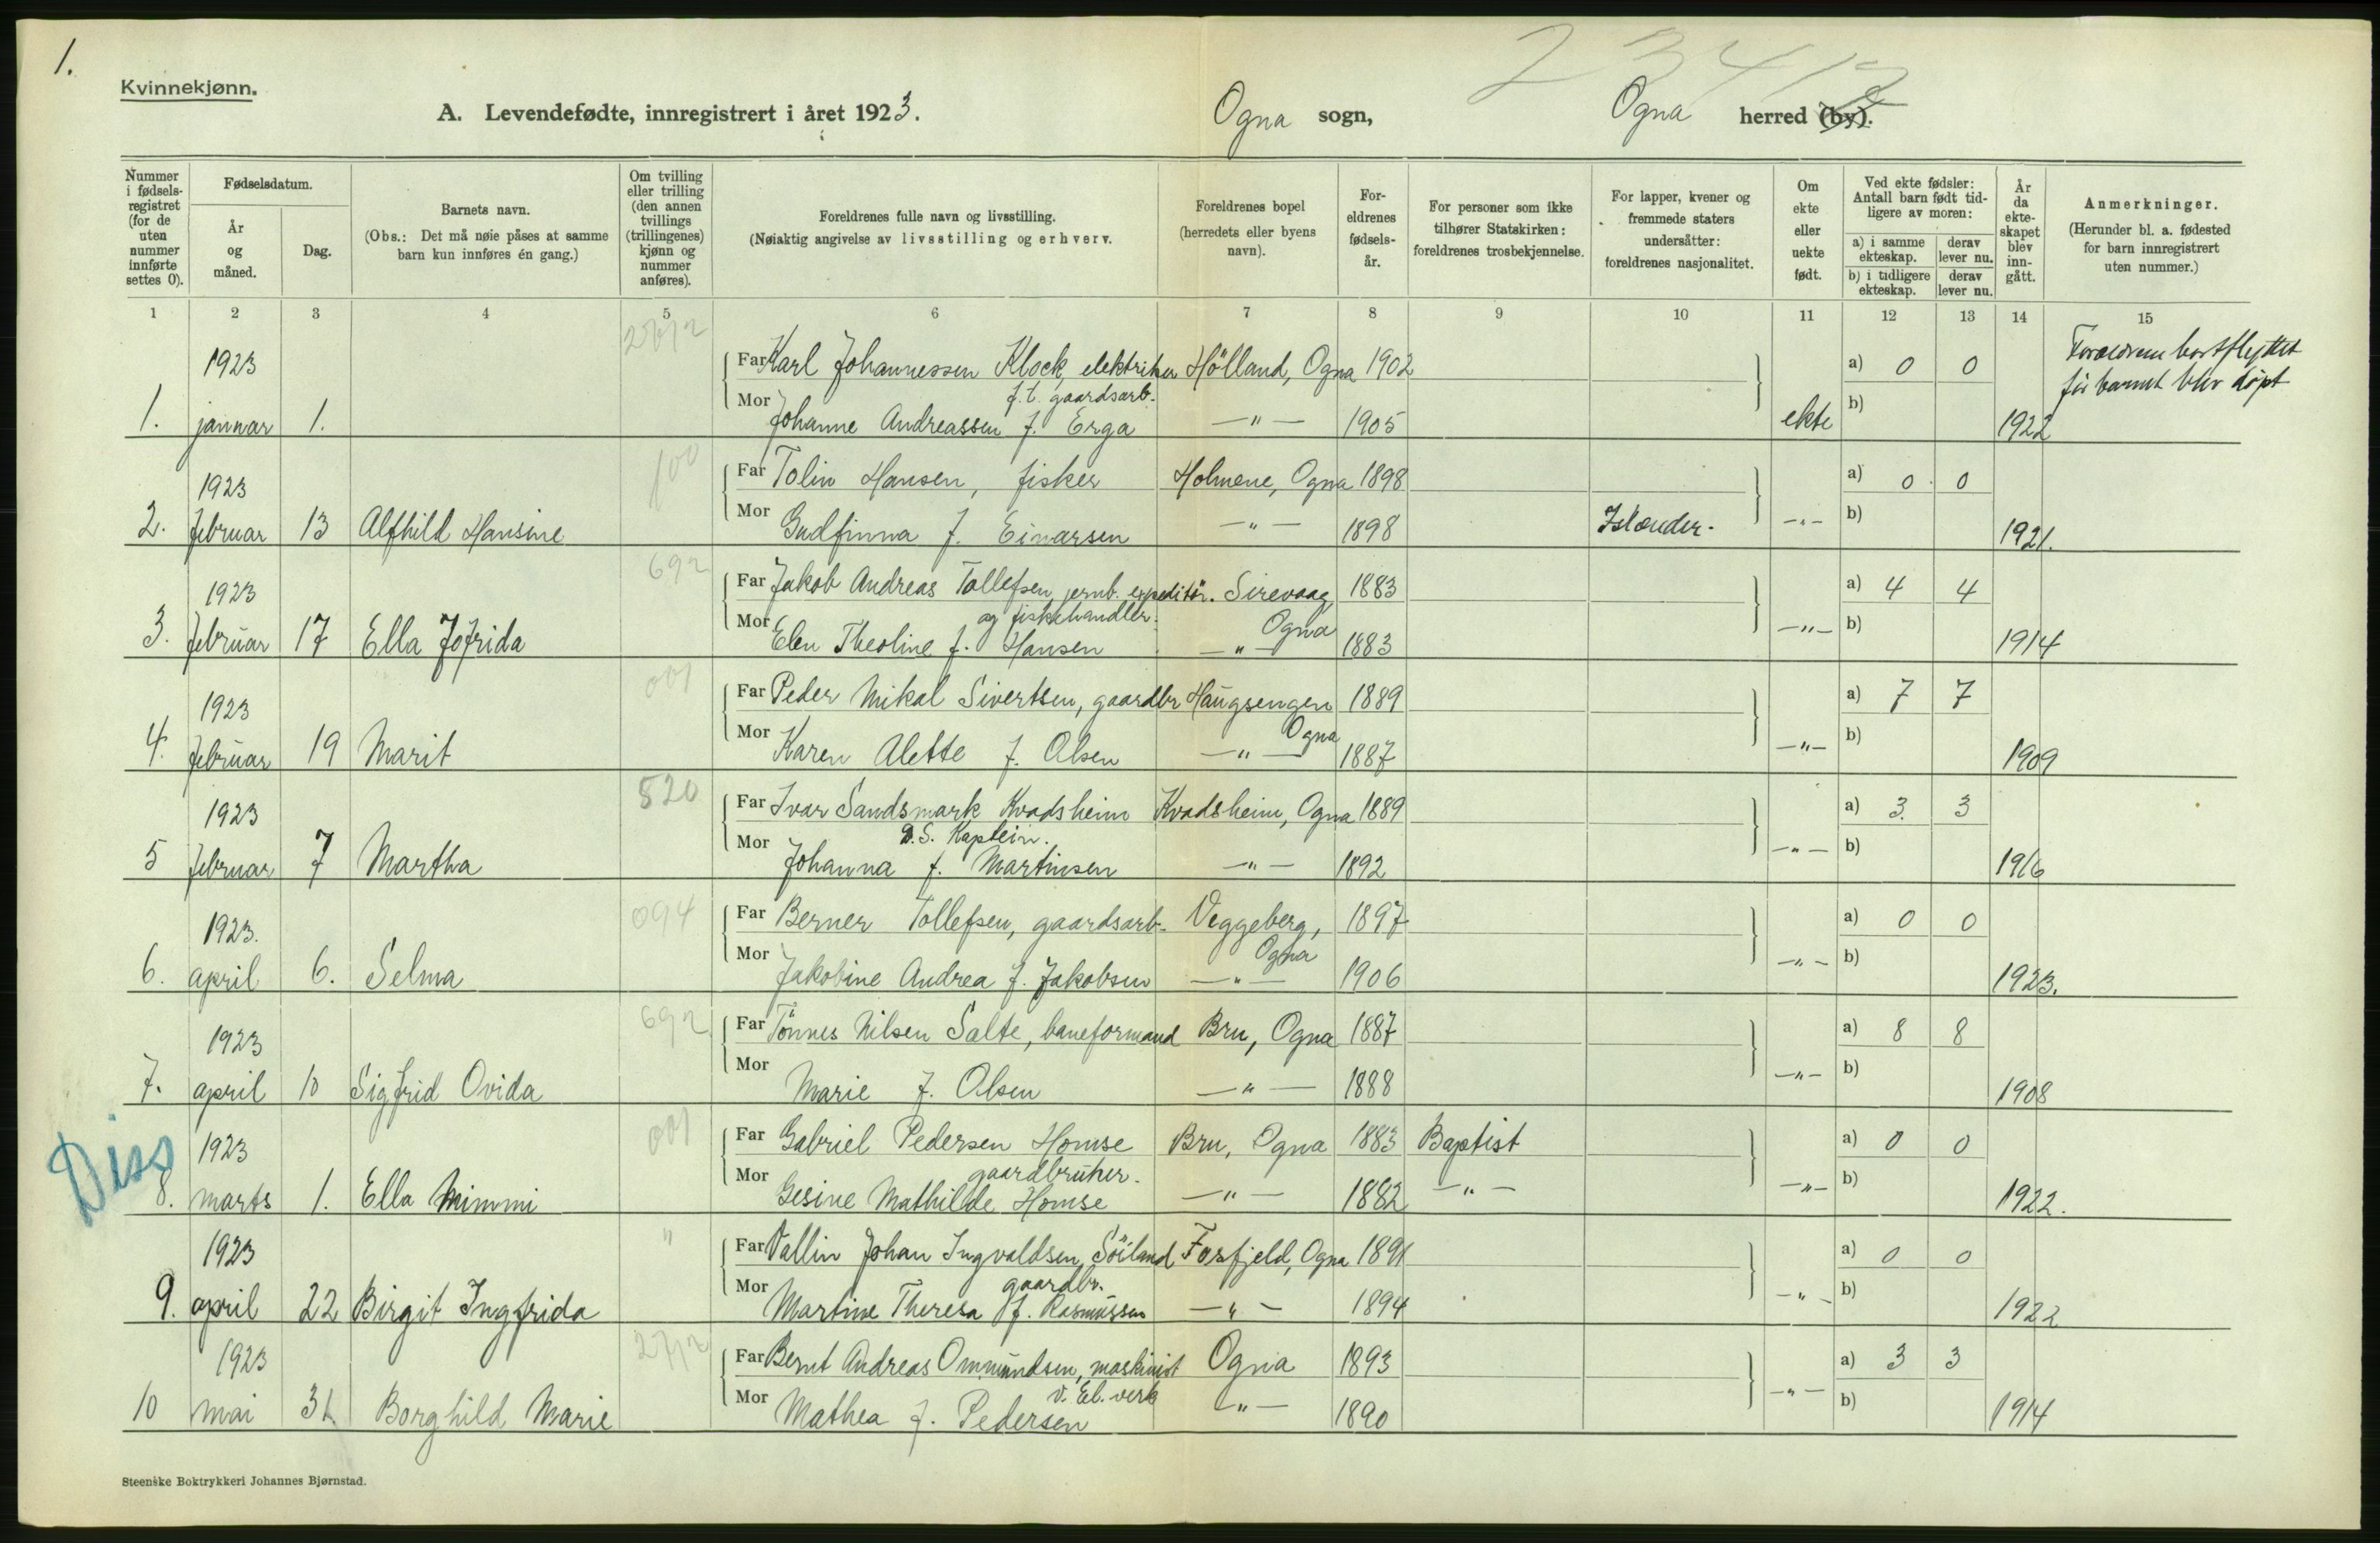 1.
Kvinnekjønn.
A. Levendefødte, innregistrert i året 1923. Ogna sogn, Ogna herred (by).
2 3 4 1 2
Nummer i fødselsregistret (for de uten nummer innførte settes 0).
Fødselsdatum.
År og måned.
Dag.
Barnets navn.
(Obs.: Det må nøie påses at samme barn kun innføres én gang.)
Om tvilling eller trilling (den annen tvillings (trillingenes) kjønn og nummer anføres).
Foreldrenes fulle navn og livsstilling.
(Nøiaktig angivelse av livsstilling og erhverv.
Foreldrenes bopel (herredets eller byens navn).
Foreldrenes fødselsår.
For personer som ikke tilhører Statskirken: foreldrenes trosbekjennelse.
For lapper, kvener og fremmede staters undersåtter: foreldrenes nasjonalitet.
Om ekte eller uekte født.
Ved ekte fødsler: Antall barn født tidligere av moren:
a) i samme ekteskap. derav lever nu.
b) i tidligere ekteskap. derav lever nu.
År da ekteskapet blev inngått.
Anmerkninger.
(Herunder bl. a. fødested for barn innregistrert uten nummer.)
1 2 3 4 5 6 7 8 9 10 11 12 13 14 15
1923 Far Karl Johannessen Klock, elektriker Hölland, Ogna 1902 a) 0 0 Foreldrene bortflyttet
f.t. gaardsarb. før barnet blev döpt
1. januar 1. Mor Johanne Andreassen f. Erga —"— 1905 ekte b) 1922
100
1923 Far Tolin Hansen, fisker Holmene, Ogna 1898 a) 0 0
2. februar 13 Alfhild Hansine Mor Gudfinna f. Einarsen —"— 1898 Islænder. —"— b) 1921.
692
1923 Far Jakob Andreas Tollefsen, jernb. expeditör. Sirevaag 1883 a) 4 4
og fiskehandler. Ogna
3. februar 17 Ella Jofrida Mor Elen Theoline f. Hansen —"— 1883 —"— b) 1914
001
1923 Far Peder Mikal Sivertsen, gaardbr Haugsengen 1889 a) 7 7
Ogna
4. februar 19 Marit Mor Karen Alette f. Olsen —"— 1887 —"— b) 1909
520
1923 Far Ivar Sandsmark Kvadsheim Kvadsheim, Ogna 1889 a) 3. 3
D.S. Kaptein.
5 februar 7 Martha Mor Johanna f. Martinsen —"— 1892 —"— b) 1916
094
1923. Far Berner Tollefsen, gaardsarb. Veggeberg, 1897 a) 0 0
Ogna
6. april 6. Selma Mor Jakobine Andrea f. Jakobsen —"— 1906 —"— b) 1923.
692
1923 Far Tönnes Nilsen Salte, baneformand Bru, Ogna 1887 a) 8 8
7. april 10 Sigfrid Ovida Mor Marie f. Olsen —"— 1888 —"— b) 1908
Diss
001
1923 Far Gabriel Pedersen Homse Bru, Ogna 1883 Baptist a) 0 0
gaardbruker.
8. marts 1. Ella Mimmi Mor Gesine Mathilde Homse —"— 1882 —"— —"— b) 1922.
"
1923 Far Vallin Johan Ingvaldsen Söiland Fosfjeld, Ogna 1891 a) 0 0
gaardbr.
9. april 22 Birgit Ingfrida Mor Martine Theresa f. Rasmussen —"— 1894 —"— b) 1922
1923 Far Bernt Andreas Ommundsen, maskinist Ogna 1893 a) 3 3
v. El. verk
10 mai 31. Borghild Marie Mor Mathea f. Pedersen —"— 1890 —"— b) 1914
Steenske Boktrykkeri Johannes Bjørnstad.